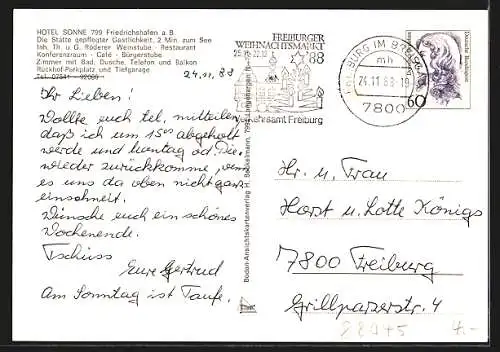 HOTEL SONNE 799 Friedrichshafen a.B.
Die Stätte gepflegter Gastlichkeit. 2 Min. zum See
Inh. Th. u. G. Röderer Weinstube · Restaurant
Konferenzraum · Café · Bürgerstube
Zimmer mit Bad, Dusche, Telefon und Balkon
Rückhof-Parkplatz und Tiefgarage
Tel. 07541
24.11.88
Ihr Lieben!
Wollte euch tel. mitteilen
daß ich um 15 abgeholt
werde und Montag od. Die.
wieder zurückkomme, wenn
es uns da oben nicht ganz
einschneit.
Wünsche euch ein schönes
Wochenende.
Tschüss
Eure Gertrud
Am Sonntag ist Taufe.
Boden-Ansichtskartenverlag H. Bockelmann, 799
FREIBURGER
WEIHNACHTSMARKT
'88
Verkehrsamt Freiburg
FREIBURG IM
mh
24.11.88-19
7800
Deutsche Bundespost
60
Hr. u. Frau
Horst u. Lotte Königs
7800 Freiburg
Grillparzerstr. 4